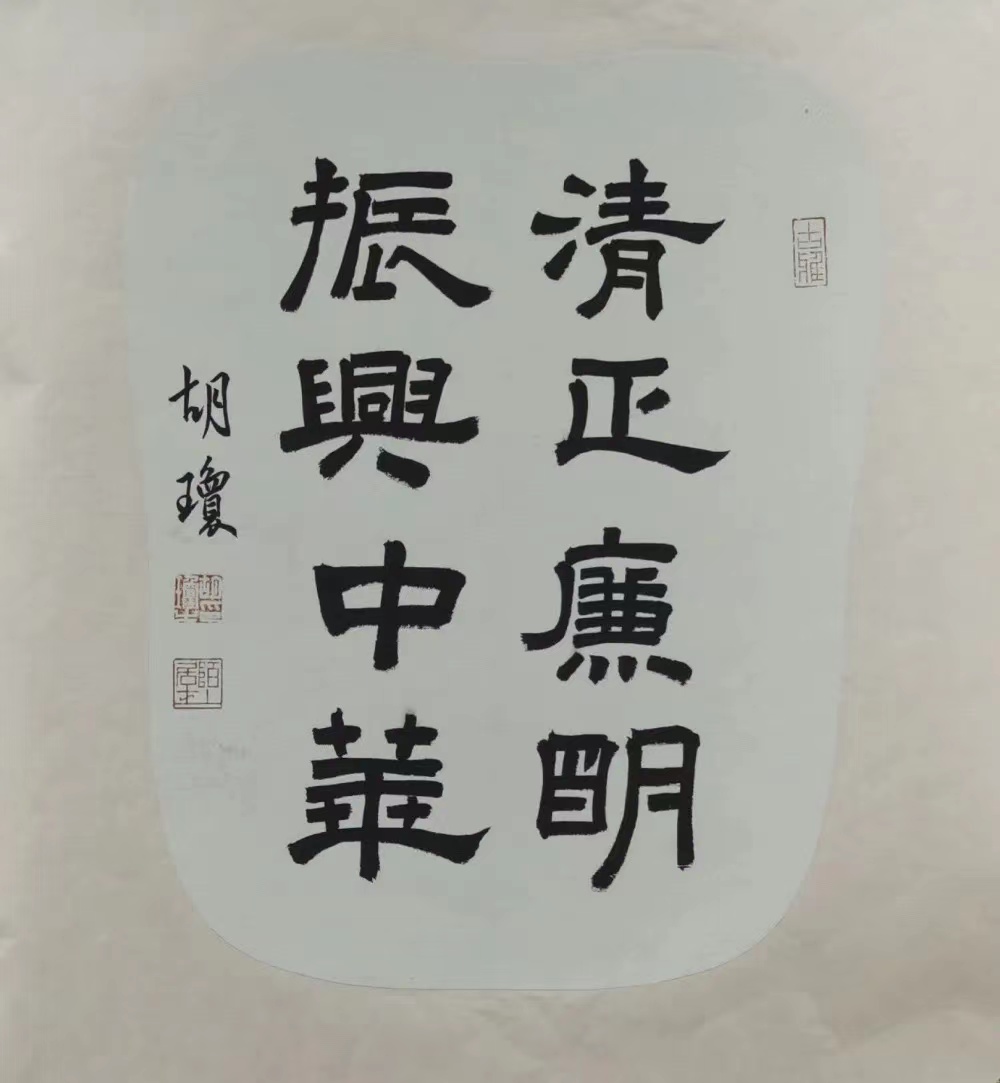 清正廉明
振興中華
胡瓊
古雅